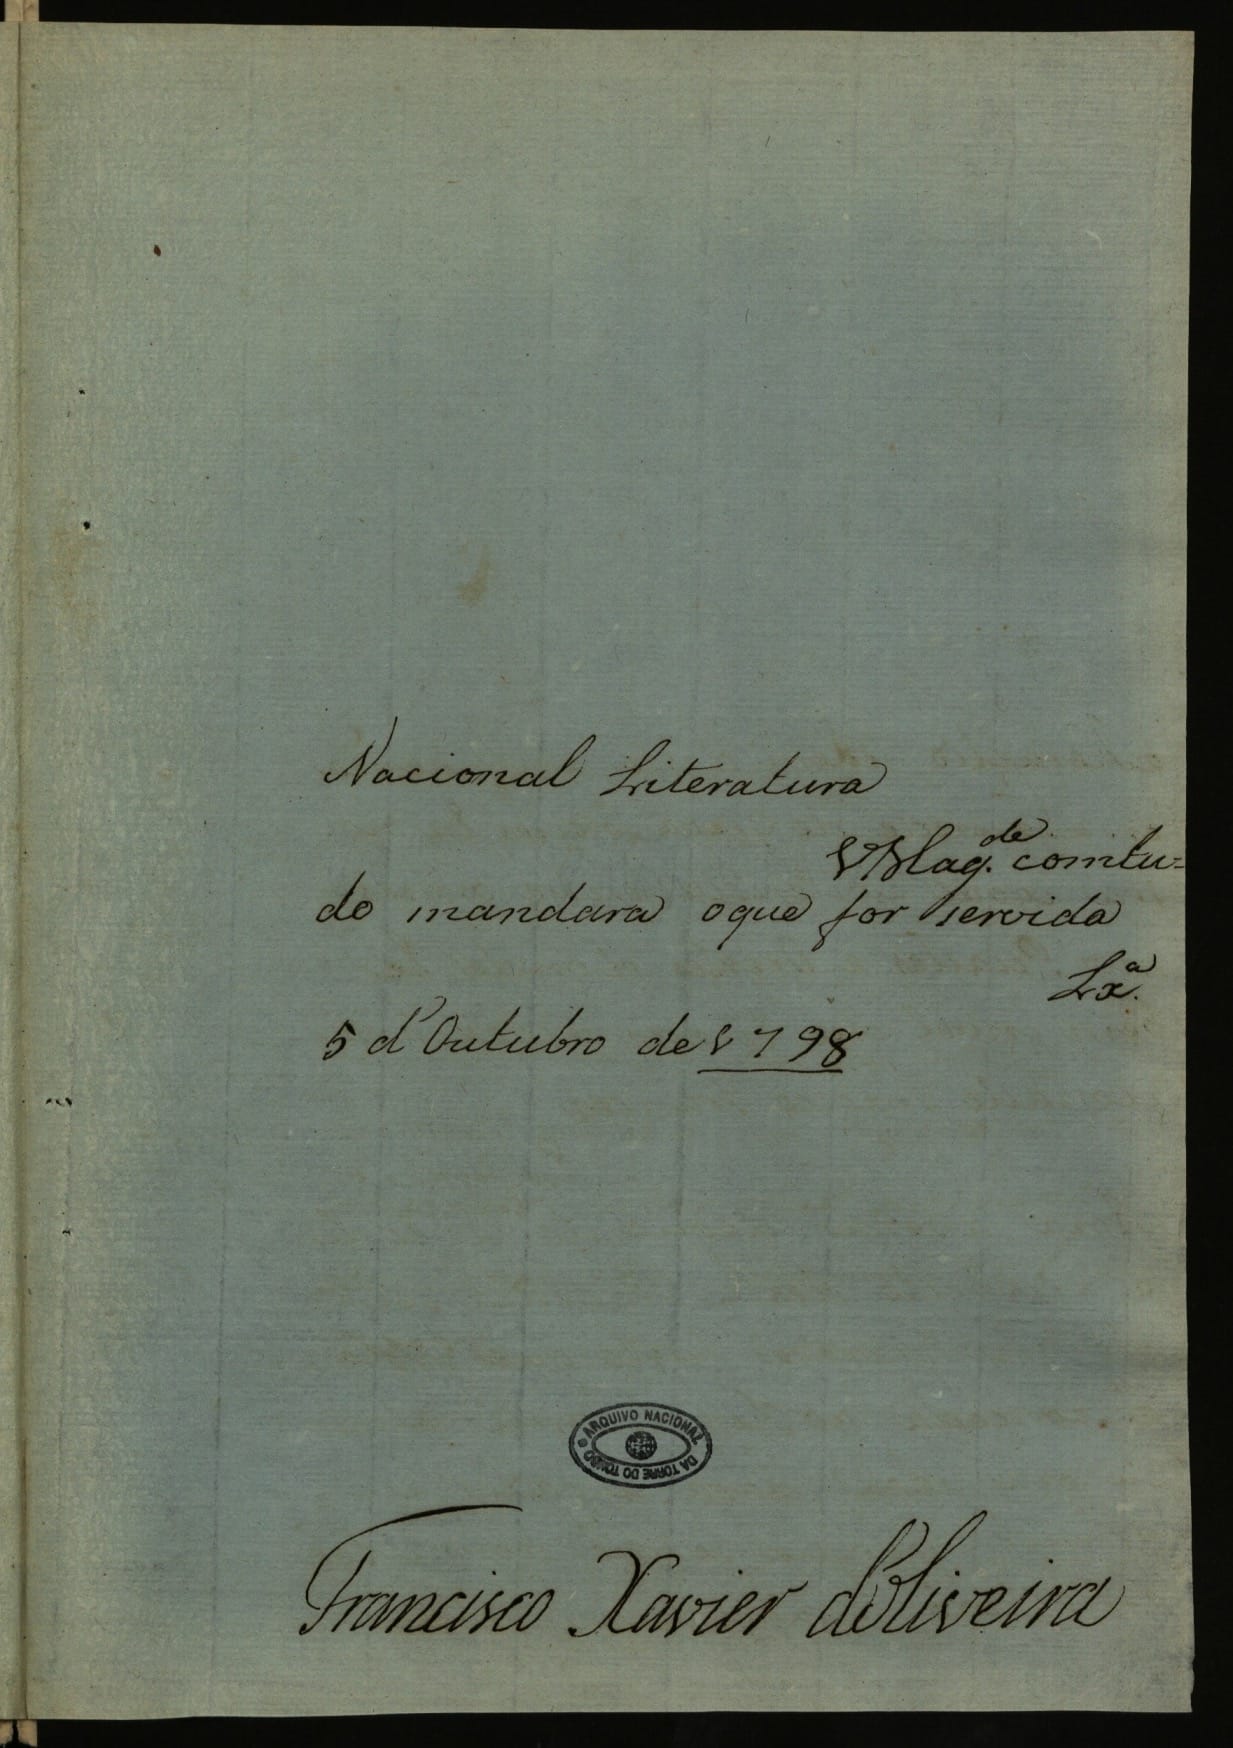 Nacional Literatura
VMag.de comtu=
do mandara oque for servida
Lx.a
5 d'Outubro de 1798
ARQUIVO NACIONAL DA TORRE DO TOMBO
Francisco Xavier d'Oliveira